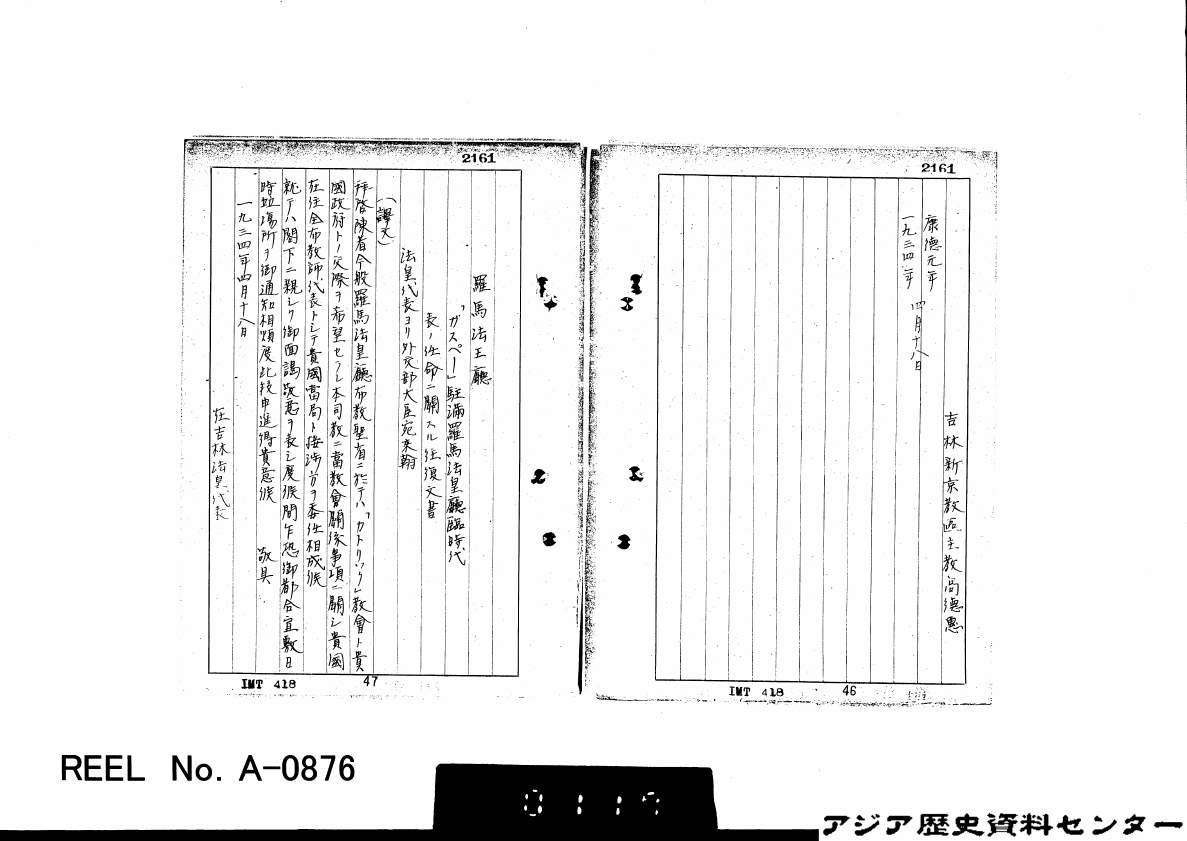 2161
康德元年
一九三四年 四月十八日
吉林新京教區主教高德惠
IMT 418
46
2161
羅馬法王廳
「ガスペー」駐滿羅馬法皇廳臨時代
表ノ任命ニ關スル往復文書
法皇代表ヨリ外交部大臣宛來翰
(譯文)
拜啓陳者今般羅馬法皇廳布教聖省ニ於テハ「カトリック」教會ト貴
國政府トノ交際ヲ希望セラレ本司教ニ當教會關係事項ニ關シ貴國
在住全布教師代表トシテ貴國當局ト接渉方ヲ委任相成候
就テハ閣下ニ親シク御面謁敬意ヲ表シ度候間乍恐御都合宜敷日
時竝場所ヲ御通知相煩度此段申進得貴意候 敬具
一九三四年四月十八日
在吉林法皇代表
IMT 418
47
REEL No. A-0876
0117
アジア歴史資料センター